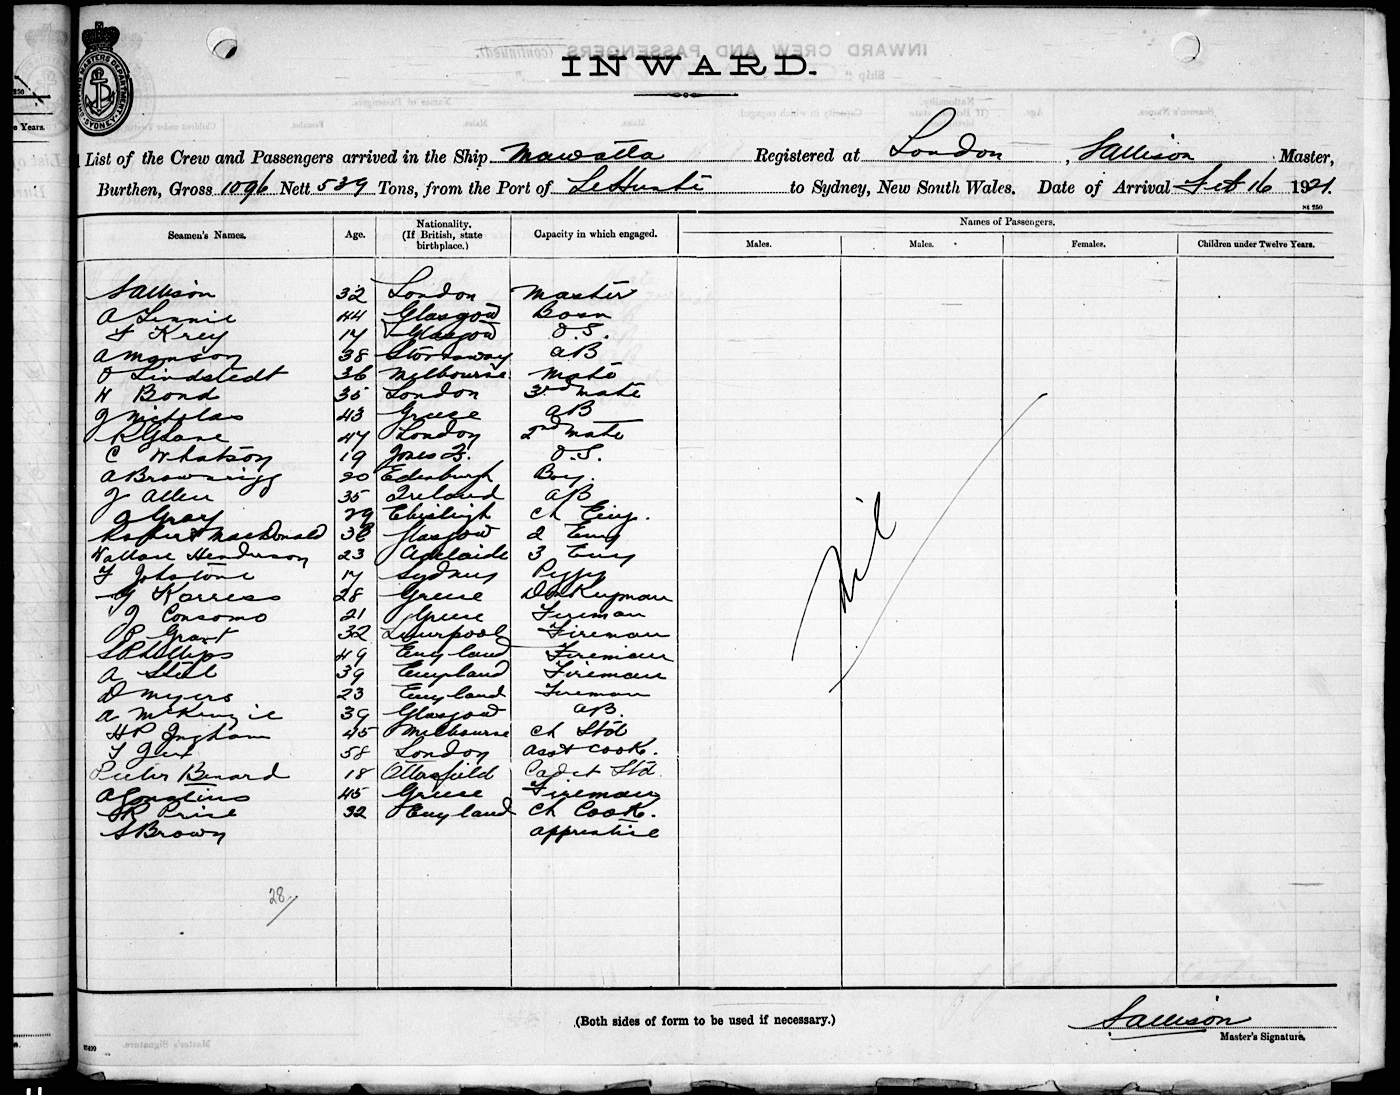 INWARD.
List of the Crew and Passengers arrived in the Ship Mawatta Registered at London, S Allison Master,
Burthen, Gross 1096 Nett 539 Tons, from the Port of to Sydney, New South Wales. Date of Arrival Feb 16 1921.
St 250
Seamen's Names. Age. Nationality. (If British, state birthplace.) Capacity in which engaged. Names of Passengers.
Males. Males. Females. Children under Twelve Years.
S Allison 32 London Master
A Linnie 44 Glasgow Bosn
F Krey 17 Glasgow O.S.
A Manson 38 Stornaway AB
O Lindstedt 36 Melbourne Mate
H Bond 35 London 3rd Mate
J Nicholas 43 Greese AB
R Glase 47 London 2nd Mate
C Whatson 19 O.S.
A Brownrigg 20 Edenburgh Boy.
J Allen 35 Ireland AB
J Gray 29 Ch Eng.
Robert MacDonald 38 Glasgow 2 Eng
Wallace Henderson 23 Adelaide 3 Eng
F Johstone 17 Sydney Peggy
G Karress 28 Greese Dnkeyman
J Consomo 21 Greese Fireman
P Grant 32 Liverpool Fireman
S Phillips 49 England Fireman
A Stil 39 England Fireman
D Myers 23 England Fireman
A McKenzie 39 Glasgow AB.
H P Ingham 45 Melbourne Ch Std
58 London Asst Cook.
Peeter Benard 18 Cadet Std.
45 Greese Fireman
S R Prise 32 England Ch Cook.
S Brown Apprentise
Nil
28
(Both sides of form to be used if necessary.)
S Allison
Master's Signature.